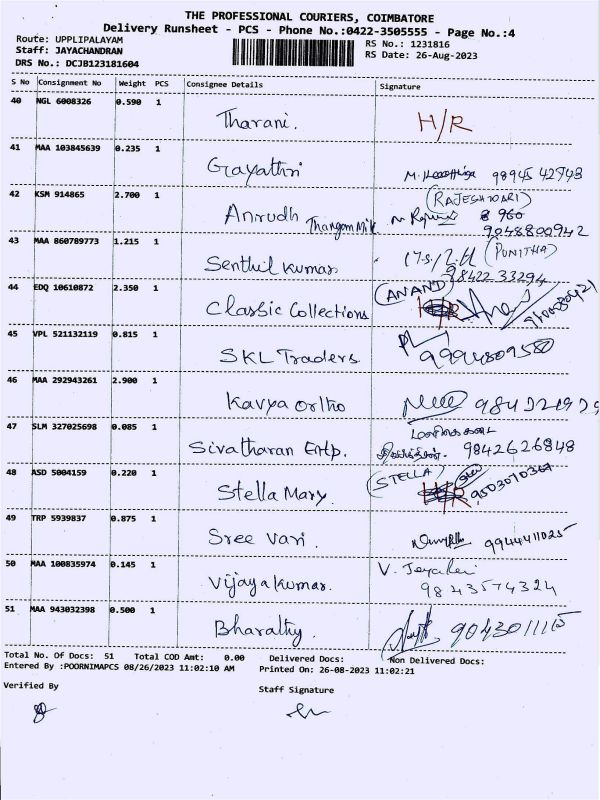 THE PROFESSIONAL COURIERS, COIMBATORE
Delivery Runsheet - PCS - Phone No.:0422-3505555 - Page No.:4
Route: UPPLIPALAYAM
RS No.: 1231816
Staff: JAYACHANDRAN
RS Date: 26-Aug-2023
DRS No.: DCJB123181604
S No Consignment No Weight PCS Consignee Details Signature
40 NGL 6008326 0.590 1 Tharani. H/R
41 MAA 103845639 0.235 1 Gayathri 98945 42743
42 KSM 914865 2.700 1 Anrudh Thangam Mik (RAJESHWARI)
9048800942
43 MAA 860789773 1.215 1 Senthil kumar (PUNITHA)
98422 33294
44 EDQ 10610872 2.350 1 Classic Collections (ANAND) H/R
45 VPL 521132119 0.815 1 SKL Traders 9994809550
46 MAA 292943261 2.900 1 Kavya ortho
47 SLM 327025698 0.085 1 Sivatharan Entp. 9842626848
48 ASD 5004159 0.220 1 Stella Mary. (STELLA) H/R 9503070367
49 TRP 5939837 0.875 1 Sree Vari. 9944411025
50 MAA 100835974 0.145 1 Vijaya kumar. V.
9843574324
51 MAA 943032398 0.500 1 Bharathy. 9043011115
Total No. Of Docs: 51 Total COD Amt: 0.00 Delivered Docs: Non Delivered Docs:
Entered By :POORNIMAPCS 08/26/2023 11:02:10 AM Printed On: 26-08-2023 11:02:21
Verified By
Staff Signature